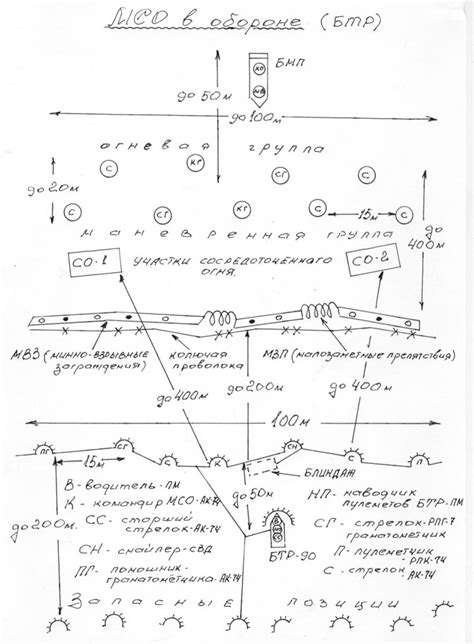 МСО в обороне (БТР)
БМП
КО
НВ
до 50м
до 100м
огневая группа
С С КГ СГ С
до 20м
С С КГ С С
15м
до 400м
маневренная группа
СО-1 участки сосредоточенного огня. СО-2
МВЗ (минно-взрывные заграждения)
колючая проволока
МЗП (малозаметные препятствия)
до 400м
до 200м
до 400м
100м
ПГ СГ С К СН С П
15м
БЛИНДАЖ
до 50м
до 200м.
В - водитель-ПМ
К - командир МСО-АК-74
СС - старший стрелок-АК-74
СН - снайпер-СВД
ПГ - помошник-гранатометчика-АК-74
БТР-90
НП - наводчик пулеметов БТР-ПМ
СГ - стрелок-РПГ-7 гранатометчик
П - пулеметчик РПК-74
С - стрелок АК-74
Запасные позиции